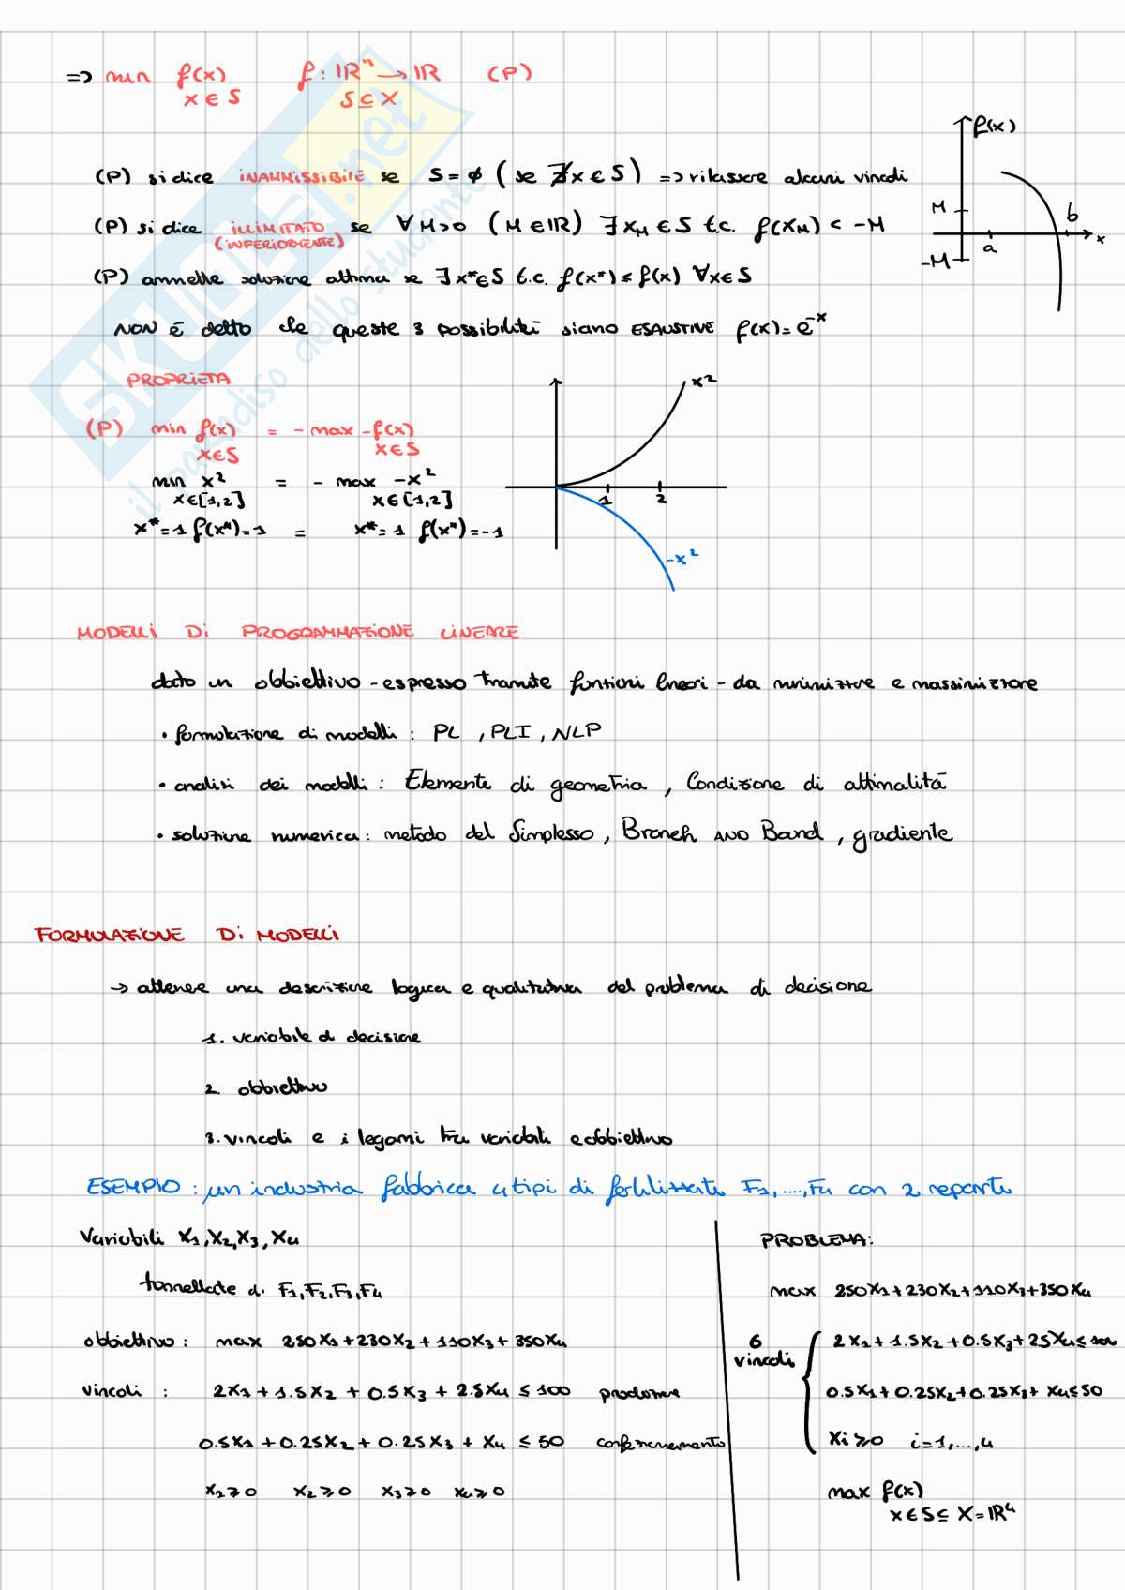 => min f(x) f: IR^n → IR (P)
x ∈ S S ⊆ X
f(x)
(P) si dice INAMMISSIBILE se S = ∅ ( se ∄x ∈ S ) => rilassare alcuni vincoli
(P) si dice ILLIMITATO se ∀ M>0 (M ∈ IR) ∃ x_M ∈ S t.c. f(x_M) < -M
(INFERIORMENTE)
M b
a x
-M
(P) ammette soluzione ottima se ∃ x* ∈ S t.c. f(x*) ≤ f(x) ∀x ∈ S
NON è detto che queste 3 possibilità siano ESAUSTIVE f(x) = e^-x
PROPRIETÀ
x²
(P) min f(x) = - max -f(x)
x ∈ S x ∈ S
min x² = - max -x²
x ∈ [1,2] x ∈ [1,2]
1 2
x* = 1 f(x*) = 1 = x* = 1 f(x*) = -1
-x²
MODELLI Di PROGRAMMAZIONE LINEARE
dato un obbiettivo - espresso tramite funzioni lineari - da minimizzare e massimizzare
• formulazione di modelli : PL , PLI , NLP
• analisi dei modelli : Elemente di geometria , Condizione di ottimalità
• soluzione numerica : metodo del Simplesso , Branch AND Band , gradiente
FORMULAZIONE Di MODELLI
→ ottenere una descrizione logica e qualitativa del problema di decisione
1. variabile di decisione
2. obbiettivo
3. vincoli e i legami tra variabili e obbiettivo
ESEMPIO : un industria fabbrica 4 tipi di fertilizzate F1,....,F4 con 2 reparti
Variabili X1,X2,X3,X4
tonnellate di F1,F2,F3,F4
obbiettivo : max 250X1 + 230X2 + 110X3 + 350X4
vincoli : 2X1 + 1.5X2 + 0.5X3 + 2.5X4 ≤ 100 produzione
0.5X1 + 0.25X2 + 0.25X3 + X4 ≤ 50 confezionamento
X1 ≥ 0 X2 ≥ 0 X3 ≥ 0 X4 ≥ 0
PROBLEMA:
max 250X1 + 230X2 + 110X3 + 350X4
6 vincoli
2X1 + 1.5X2 + 0.5X3 + 25X4 ≤ 100
0.5X1 + 0.25X2 + 0.25X3 + X4 ≤ 50
Xi ≥ 0 i=1,....,4
max f(x)
x ∈ S ⊆ X = IR⁴
SKUOLA.net
il paradiso dello studente